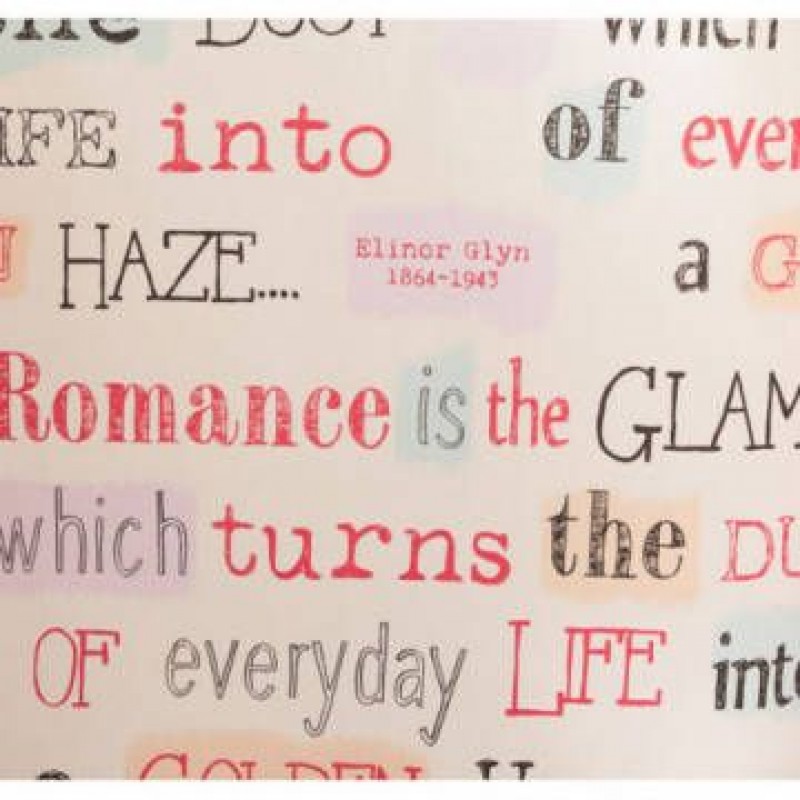 the DUST which
LIFE into of every
N HAZE.... Elinor Glyn a G
1864-1943
Romance is the GLAM
which turns the DU
OF everyday LIFE into
a GOLDEN H